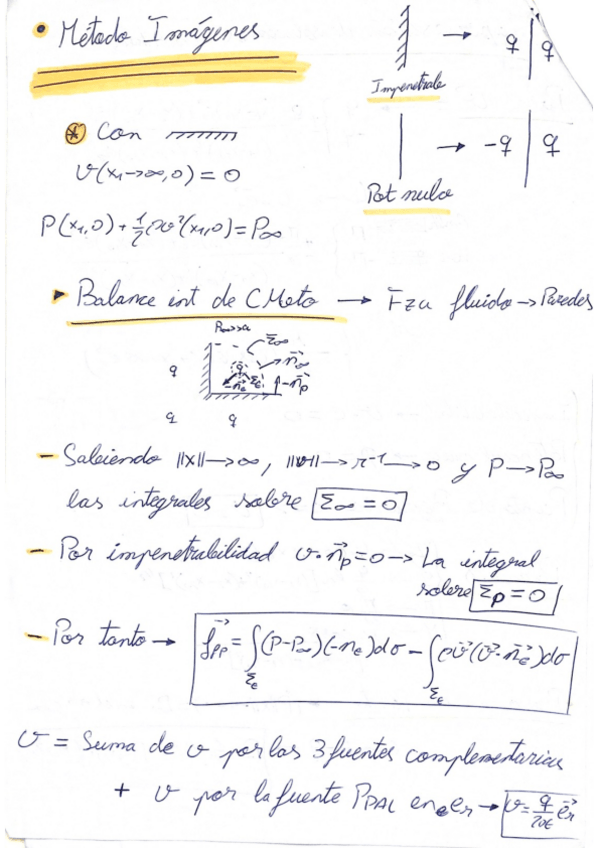 • Método Imágenes
→ q | q
Impenetrable
→ -q | q
Pot nulo
⊛ Con
v(x₁→∞,0) = 0
P(x₁,0) + ½ρv²(x₁,0) = P∞
► Balance int de CMoto → Fza fluido → Paredes
Σ∞
q n∞
q Σε -np
-nε
q q
- Sabiendo ||x||→∞, ||v||→r⁻¹→0 y P→P∞
las integrales sobre Σ∞ = 0
- Por impenetrabilidad v·n⃗p = 0 → La integral
sobre Σp = 0
- Por tanto → f⃗pp = ∫Σε (P-P∞)(-nε)dσ - ∫Σε ρv⃗(v⃗·n⃗ε)dσ
v = Suma de v por las 3 fuentes complementarias
+ v por la fuente PPAL en er → v = q/2πε e⃗r